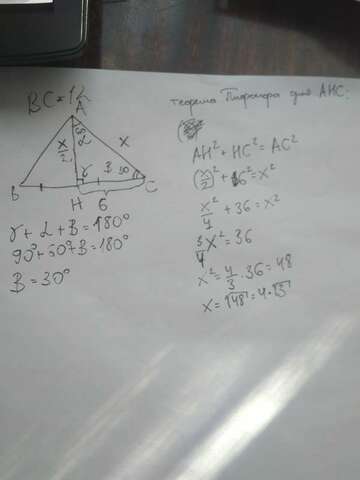 BC = 12
A
α
x
x/2
γ
β 30°
B
C
H
6
γ + α + β = 180°
90° + 60° + β = 180°
β = 30°
теорема Пифагора для AHC:
AH² + HC² = AC²
(x/2)² + 6² = x²
x²/4 + 36 = x²
3/4 x² = 36
x² = 4/3 · 36 = 48
x = √48 = 4·√3